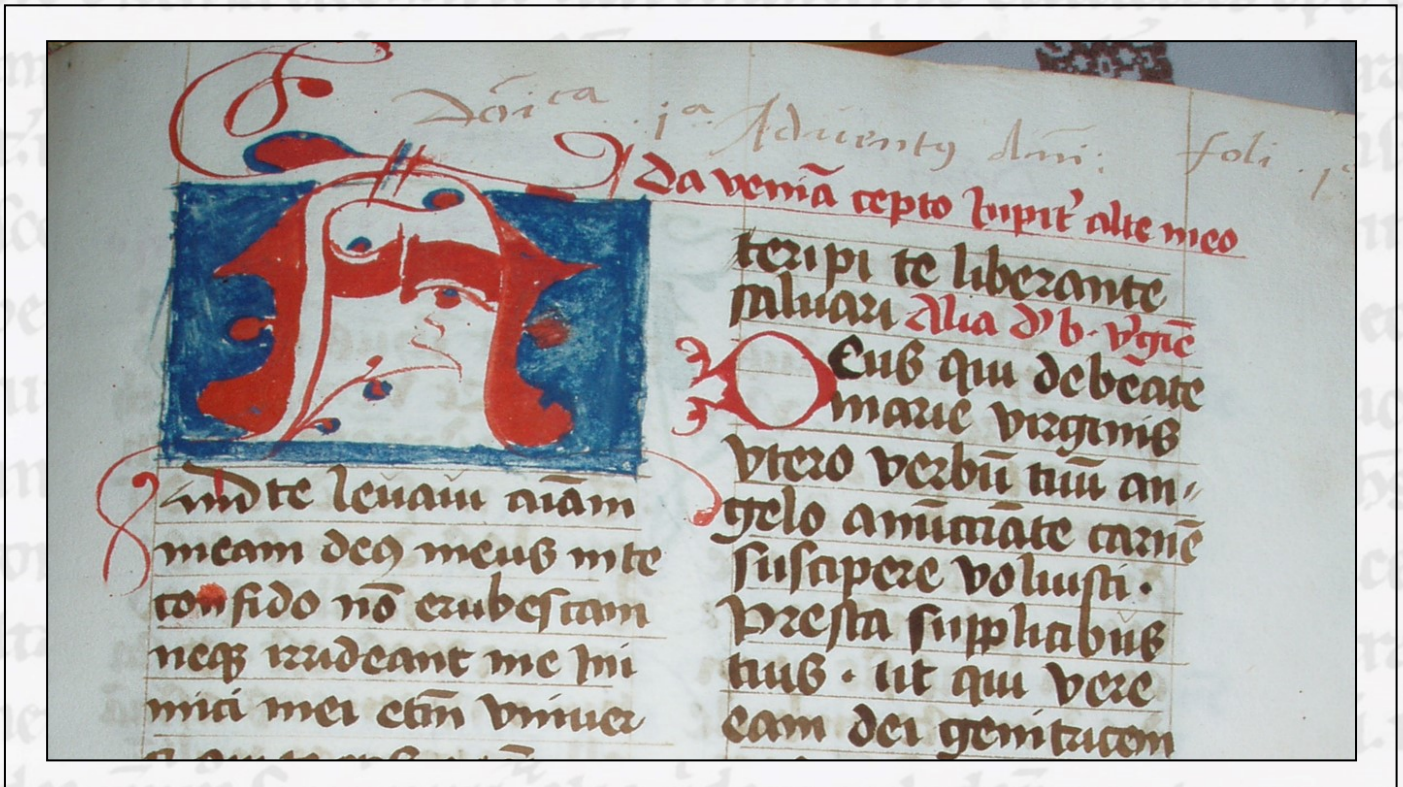 Dōica 1ª Aduentꝯ dn̄i: foli 1º
da veniā cepto
Ad te leuaui aīam
meam deꝯ meus in te
confido nō erubescam
neqꝫ irrideant me ini
mici mei etm̄ vniuer
teripi te liberante
saluari Alia d' b. v'gīe
Deus qui de beate
marie virginis
vtero verbū tuū an-
gelo annūciāte carnē
suscipere voluisti ·
Presta supplicibus
tuis · ut qui vere
eam dei genitricem